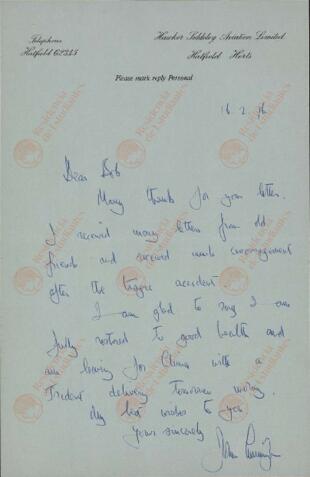 Telephone
Hatfield 62345
Hawker Siddeley Aviation Limited
Hatfield Herts
Please mark reply Personal
16. 2. 76
Dear Bob
Many thanks for your letter.
I received many letters from old
friends and received much encouragement
after the tragic accident
I am glad to say I am
fully restored to good health and
am leaving for China with a
Trident delivery tomorrow
best wishes to you
Yours sincerely
John
Residencia de Estudiantes